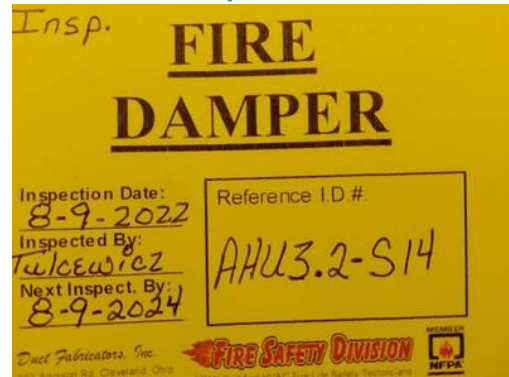 Insp.
FIRE
DAMPER
Inspection Date:
8-9-2022
Inspected By:
Tulcewicz
Next Inspect. By:
8-9-2024
Reference I.D.#:
AHU3.2-S14
Duct Fabricators, Inc.
Rd. Cleveland, Ohio
FIRE SAFETY DIVISION
Fire Life Safety Technicians
MEMBER
NFPA